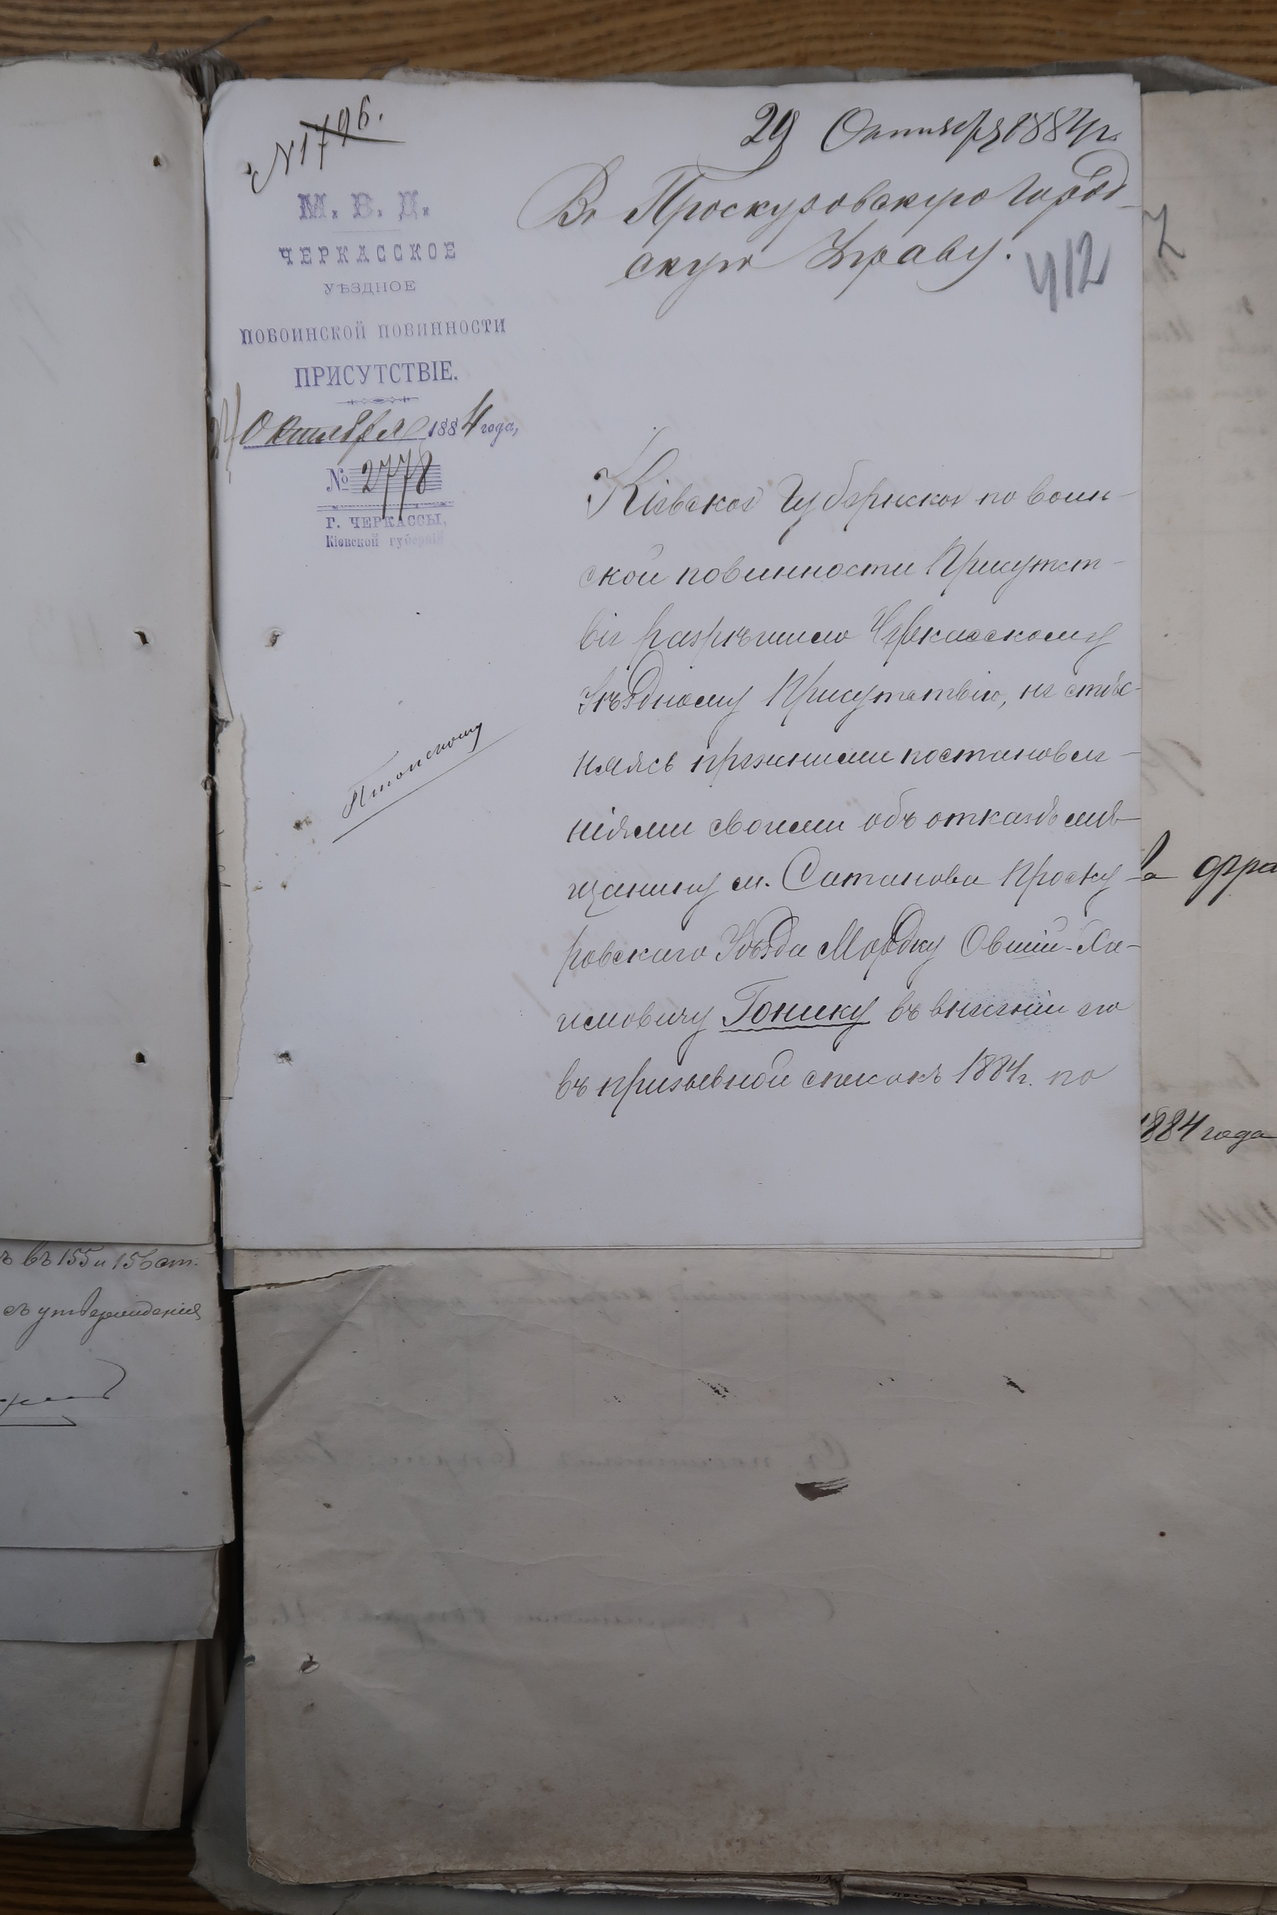 № 1796.
29 Октября 1884 г.
М. В. Д.
ЧЕРКАССКОЕ
УѢЗДНОЕ
ПОВОИНСКОЙ ПОВИННОСТИ
ПРИСУТСТВІЕ.
24 Октября 1884 года,
№ 2778
Г. ЧЕРКАССЫ,
Кіевской губерніи
Въ Проскуровскую Город-
скую Управу.
412
Кіевское Губернское по воин-
ской повинности Присутст-
віе разрѣшило Черкасскому
Уѣздному Присутствію, не стѣс-
няясь прежними постановле-
ніями своими объ отказѣ мѣ-
щанину м. Сатанова Проску-
ровскаго Уѣзда Мордку Овшій-Ха-
имовичу Гонику въ внесеніи его
въ призывной списокъ 1884 г. по
1884 года
ъ въ 155 и 156 ст.
съ утвержденія